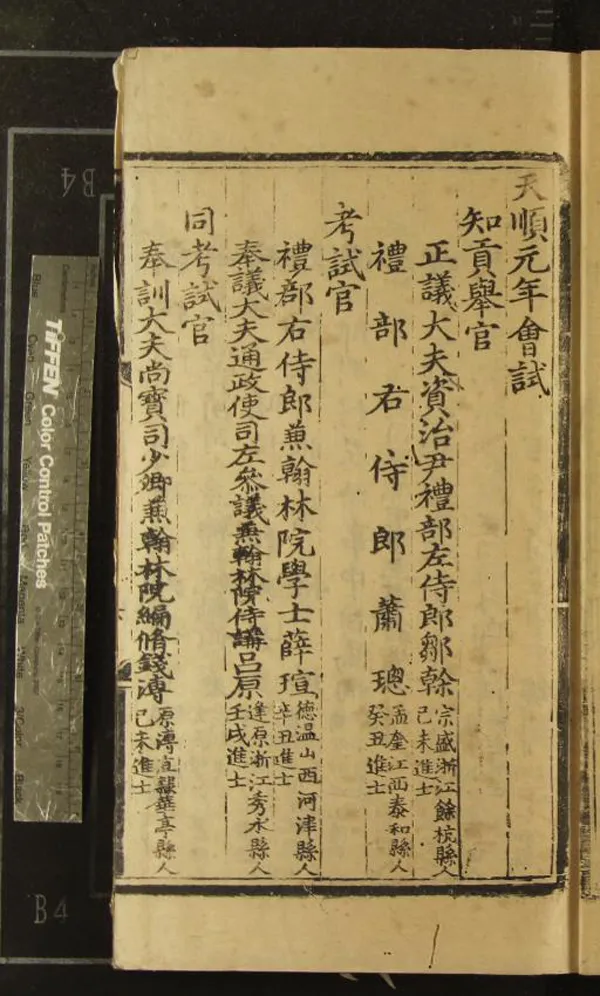 天順元年會試
知貢舉官
正議大夫資治尹禮部左侍郎鄒幹 宗盛浙江餘杭縣人 己未進士
禮部右侍郎蕭璁 孟奎江西泰和縣人 癸丑進士
考試官
禮部右侍郎蒹翰林院學士薛瑄 德温山西河津縣人 辛丑進士
奉議大夫通政使司左叅議蒹翰林院侍講呂原 逢原浙江秀水縣人 壬戌進士
同考試官
奉訓大夫尚寶司少卿蒹翰林院編脩錢溥 原溥直隸華亭縣人 己未進士
B4
TIFFEN Color Control Patches
B4